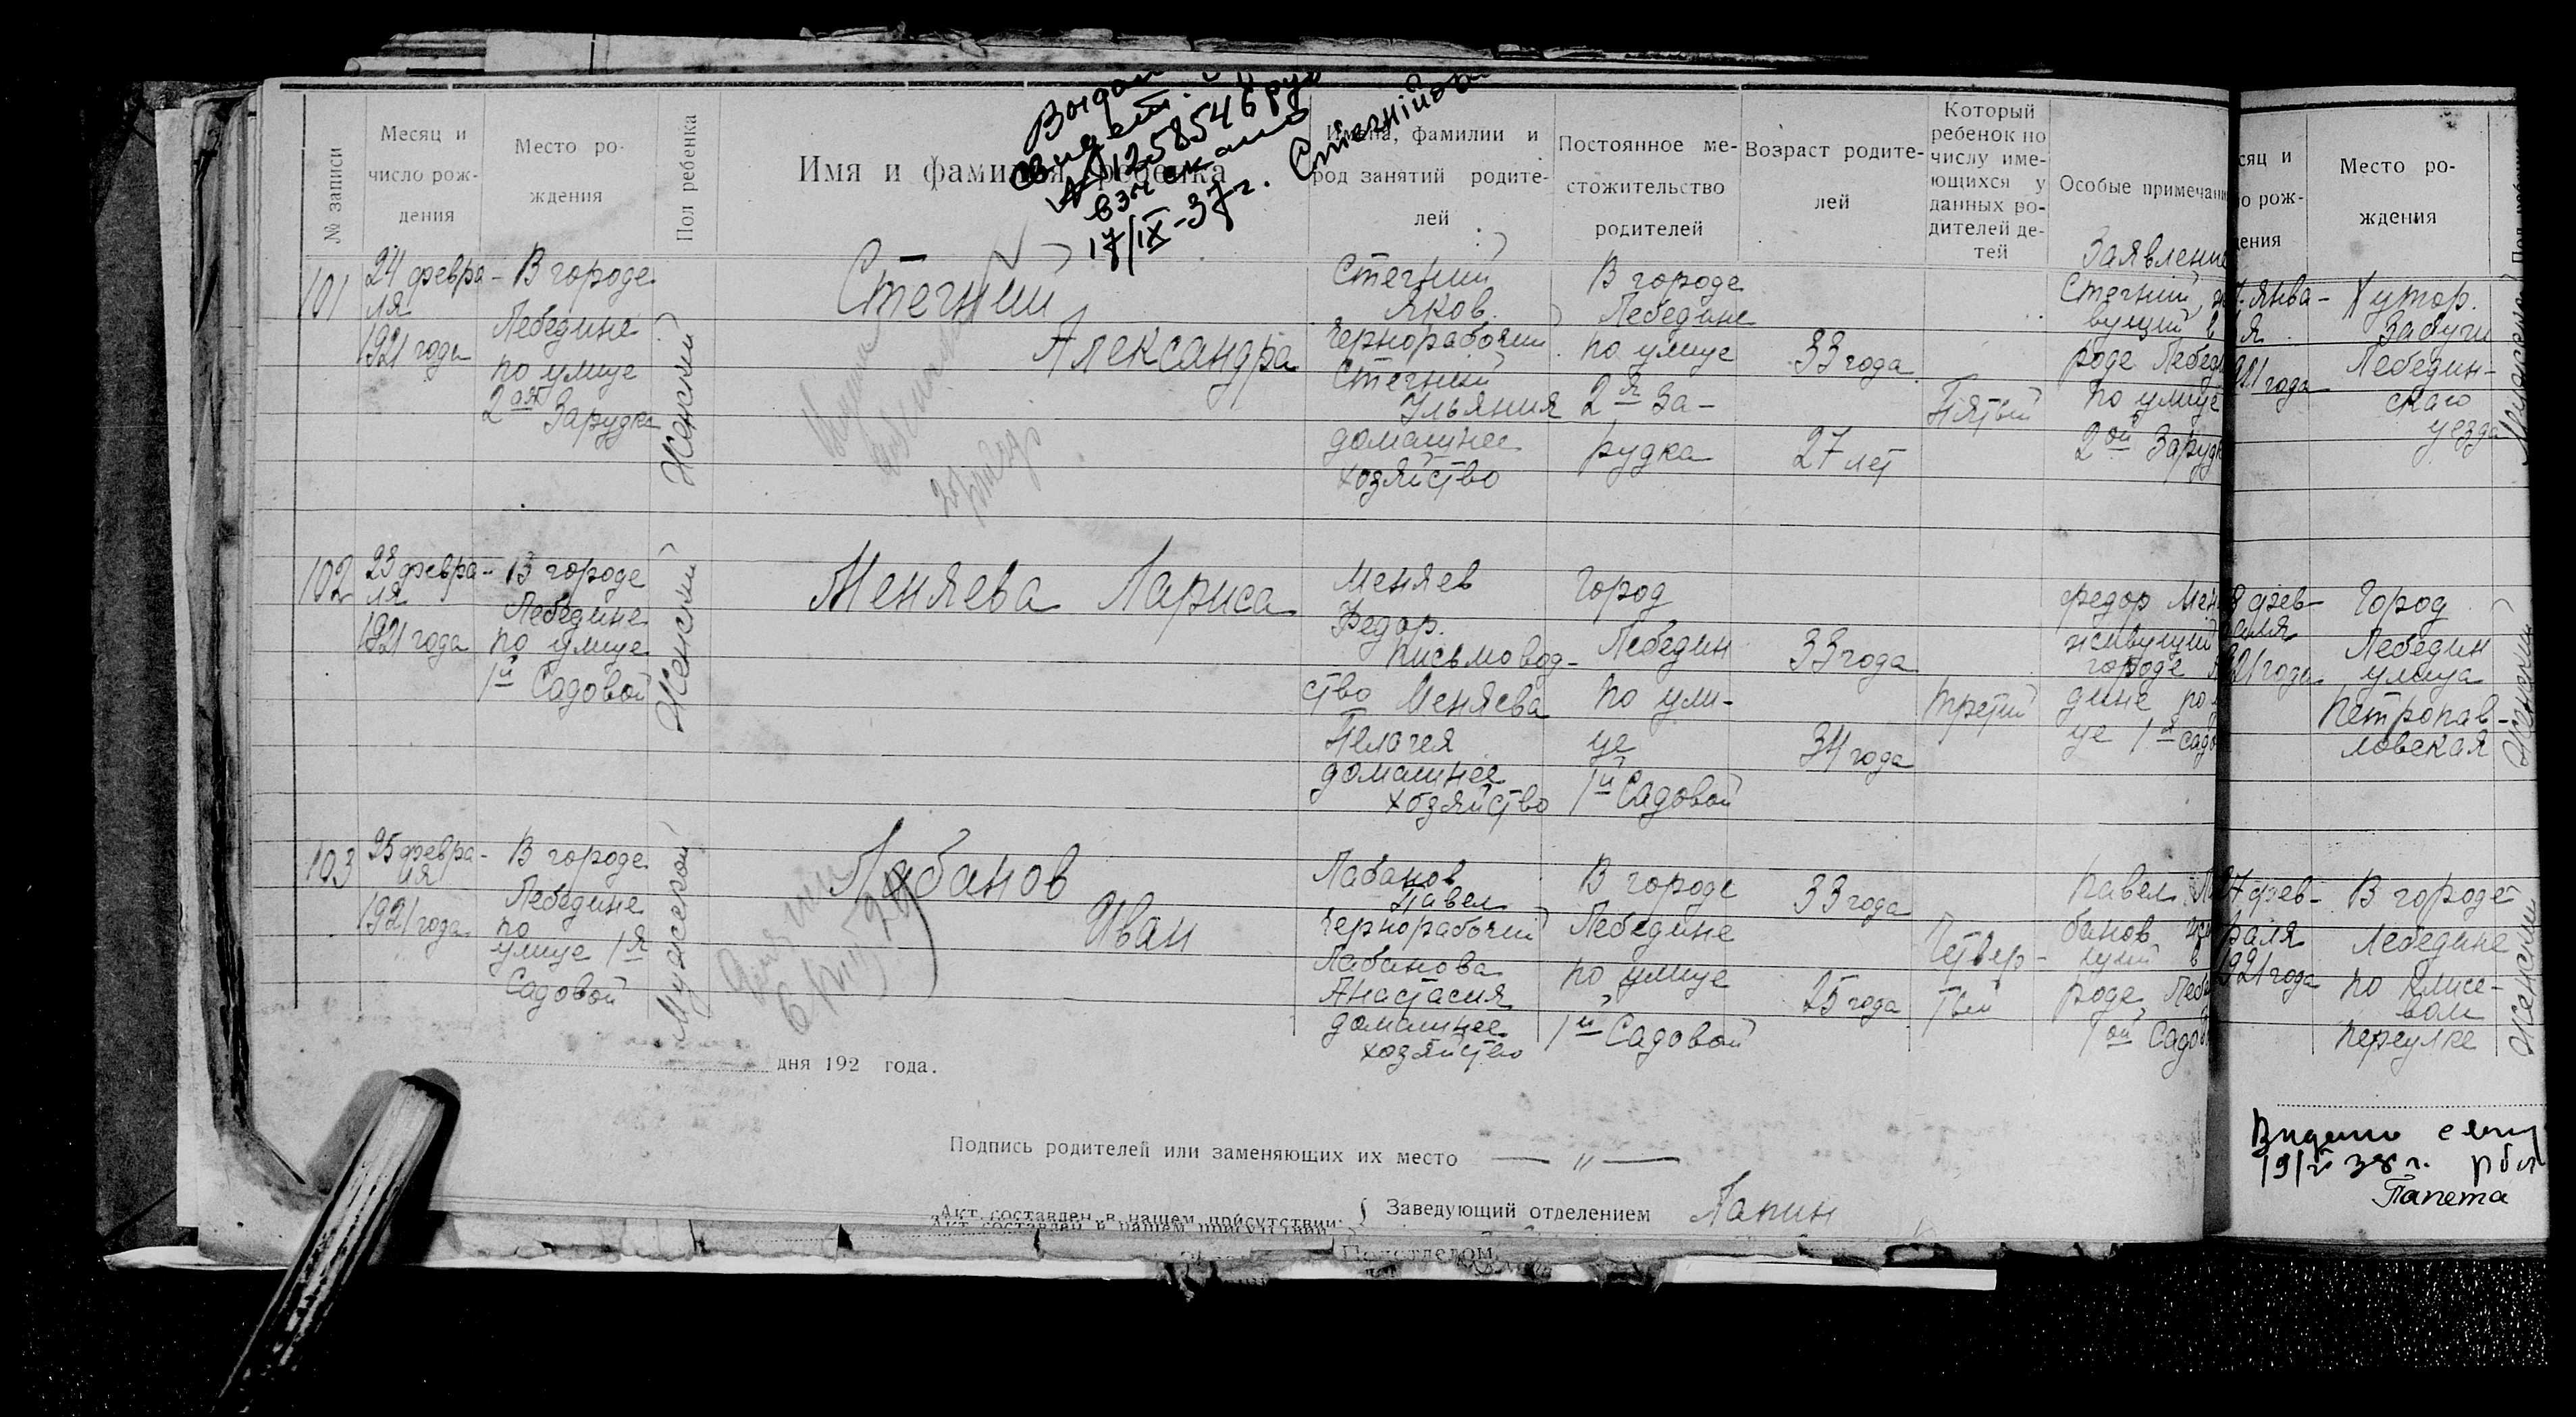 № записи
Месяц и
число рож-
дения
Место ро-
ждения
Пол ребенка
Имя и фамилия ребенка
Имена, фамилии и
род занятий родите-
лей
Постоянное ме-
стожительство
родителей
Возраст родите-
лей
Который
ребенок по
числу име-
ющихся у
данных ро-
дителей де-
тей
Особые примечани
17/IX-37г.
101
24 февра-
ля
1921 года
В городе
Лебедине
по улице
2ая Зарудка
Женский
Стегний
Александра
Стегний
Яков
Чернорабочий
Стегний
Ульяния
домашнее
хозяйство
В городе
Лебедине
по улице
2я За-
рудка
33 года
27 лет
Пятый
Заявление
Стегний, 
вущий в
роде Лебед
по улице
2ой Заруд
102
23 февра-
ля
1921 года
В городе
Лебедине
по улице
1й Садовой
Женский
Меняева Лариса
Меняев
Федор
письмовод-
ство Меняева
Пелагея
домашнее
хозяйство
Город
Лебедин
по ули-
це
1й Садовой
33 года
34 года
третий
Федор Мен
живущий
городе
дине по
це 1я Садо
103
25 февра-
ля
1921 года
В городе
Лебедине
по
улице 1я
Садовой
Мужской
Лабанов
Иван
Лабанов
Павел
Чернорабочий
Лабанова
Анастасия
домашнее
хозяйство
В городе
Лебедине
по улице
1й Садовой
33 года
25 года
Четвер-
тый
Павел Ла
банов
щий в
роде Леб
1ой Садов
дня 192 года.
Подпись родителей или заменяющих их место — „ —
Акт составлен в нашем присутствии: { Заведующий отделением Лапин
Акт составлен в нашем присутствии
Подотделом
сяц и
о рож-
дения
Место ро-
ждения
янва-
ля
921 года
Хутор
Забуги
Лебедин-
скаго
уезда
Мужской
фев-
раля
921 года
Город
Лебедин
улица
Петропав-
ловская
Женский
27 фев-
раля
1921 года
В городе
Лебедине
по
переулке
Женский